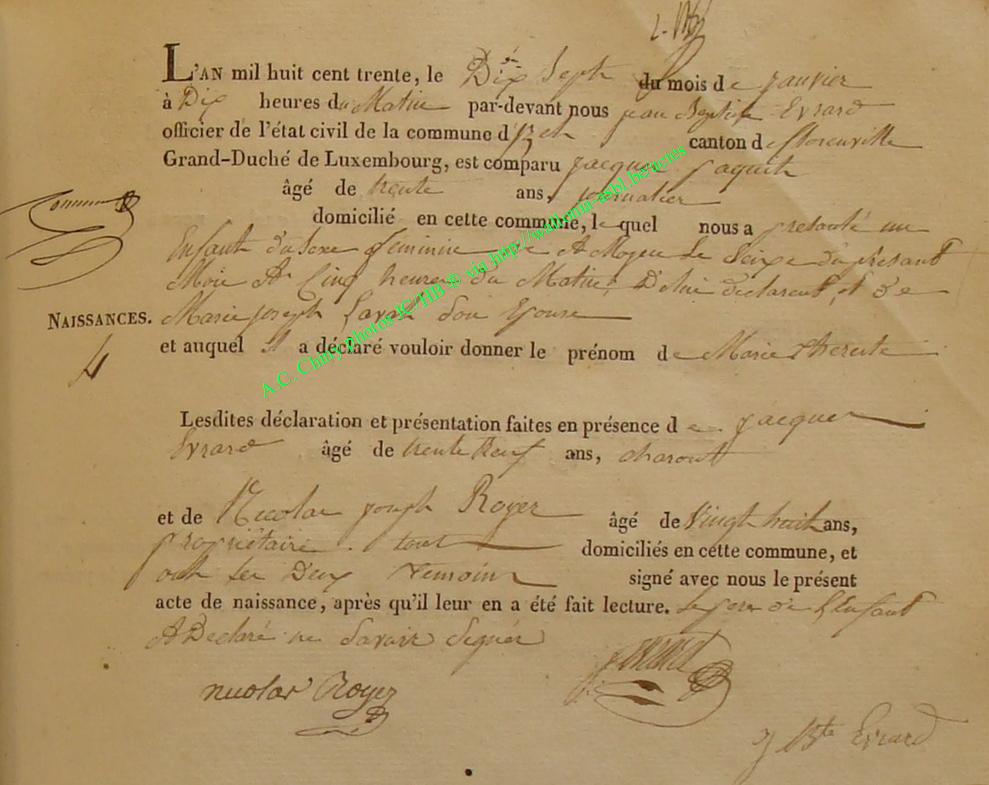 L'AN mil huit cent trente, le Dix Sept du mois de janvier
à Dix heures du Matin par-devant nous jean Baptiste Evrard
officier de l'état civil de la commune d'Izel canton de florenville
Grand-Duché de Luxembourg, est comparu jacques jaquet
âgé de trente ans, journalier
domicilié en cette commune, lequel nous a presenté un
Enfant du sexe feminin du presant
Mois A Cinq heures du Matin, De lui declarent, et De
NAISSANCES. Marie joseph Son Epouse
4
et auquel Il a déclaré vouloir donner le prénom de Marie Therese
Lesdites déclaration et présentation faites en présence de jacques
Evrard âgé de trente Neuf ans,
et de Nicolas joseph Royer âgé de Vingt huit ans,
propriétaire. tous domiciliés en cette commune, et
ont les Deux temoins signé avec nous le présent
acte de naissance, après qu'il leur en a été fait lecture. Le pere de L'Enfant
A Declaré ne Savoir Signér
nicolas Royer
j Bte Evrard
A.C. Chiny photos ICHB © via http://wallonia-asbl.be/actes